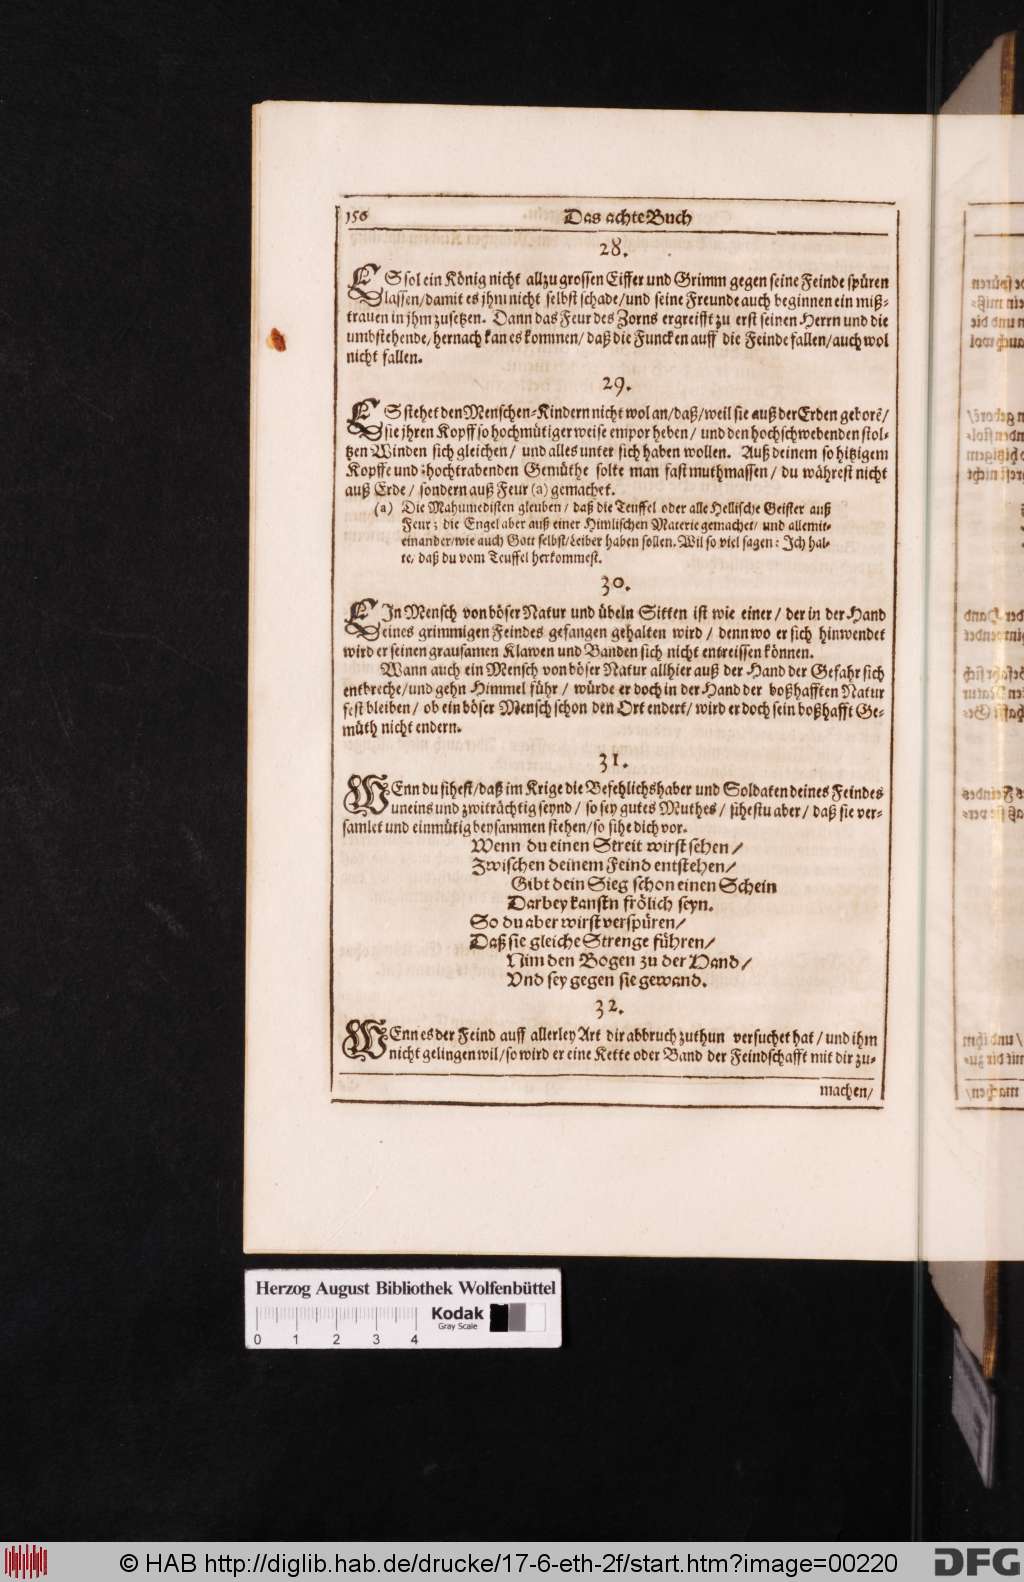 156 Das achte Buch
28.
ES sol ein König nicht allzu grossen Eiffer und Grimm gegen seine Feinde spüren
lassen/ damit es jhm nicht selbst schade/ und seine Freunde auch beginnen ein miß-
trauen in jhm zusetzen. Dann das Feur des Zorns ergreifft zu erst seinen Herrn und die
umbstehende/ hernach kan es kommen/ daß die Funcken auff die Feinde fallen/ auch wol
nicht fallen.
29.
ES stehet den Menschen-Kindern nicht wol an/ daß/ weil sie auß der Erden geborẽ/
sie jhren Kopff so hochmütiger weise empor heben/ und den hochschwebenden stol-
tzen Winden sich gleichen/ und alles unter sich haben wollen. Auß deinem so hitzigem
Kopffe und hochtrabenden Gemüthe solte man fast muthmassen/ du währest nicht
auß Erde/ sondern auß Feur (a) gemachet.
(a) Die Mahumedisten gleuben/ daß die Teuffel oder alle Hellische Geister auß
Feur; die Engel aber auß einer Himlischen Materie gemachet/ und allemit-
einander/ wie auch Gott selbst/ Leiber haben sollen. Wil so viel sagen: Ich hal-
te/ daß du vom Teuffel herkommest.
30.
EIn Mensch von böser Natur und übeln Sitten ist wie einer/ der in der Hand
eines grimmigen Feindes gefangen gehalten wird/ denn wo er sich hinwendet
wird er seinen grausamen Klawen und Banden sich nicht entreissen können.
Wann auch ein Mensch von böser Natur allhier auß der Hand der Gefahr sich
entbreche/ und gehn Himmel führ/ würde er doch in der Hand der boßhafften Natur
fest bleiben/ ob ein böser Mensch schon den Ort endert/ wird er doch sein boßhafft Ge-
müth nicht endern.
31.
WEnn du sihest/ daß im Krige die Befehlichshaber und Soldaten deines Feindes
uneins und zwiträchtig seynd/ so sey gutes Muthes/ sihestu aber/ daß sie ver-
samlet und einmütig beysammen stehen/ so sihe dich vor.
Wenn du einen Streit wirst sehen/
Zwischen deinem Feind entstehen/
Gibt dein Sieg schon einen Schein
Darbey kanstu frölich seyn.
So du aber wirst verspüren/
Daß sie gleiche Strenge führen/
Nim den Bogen zu der Hand/
Und sey gegen sie gewand.
32.
WEnn es der Feind auff allerley Art dir abbruch zuthun versuchet hat/ und ihm
nicht gelingen wil/ so wird er eine Kette oder Band der Feindschafft mit dir zu-
machen/
Herzog August Bibliothek Wolfenbüttel
Kodak
Gray Scale
0 1 2 3 4
© HAB http://diglib.hab.de/drucke/17-6-eth-2f/start.htm?image=00220
DFG